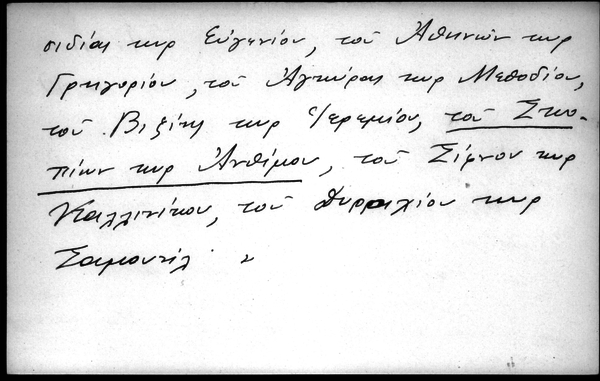 σιδίας κυρ Εὐγενίου, τοῦ Ἀθηνῶν κυρ
Γρηγορίου, τοῦ Ἀγκύρας κυρ Μεθοδίου,
τοῦ Βιζύης κυρ Ἱερεμίου, τοῦ Σκο-
πίων κυρ Ἀνθίμου, τοῦ Σίφνου κυρ
Καλλινίκου, τοῦ Δυρραχίου κυρ
Σαμουὴλ